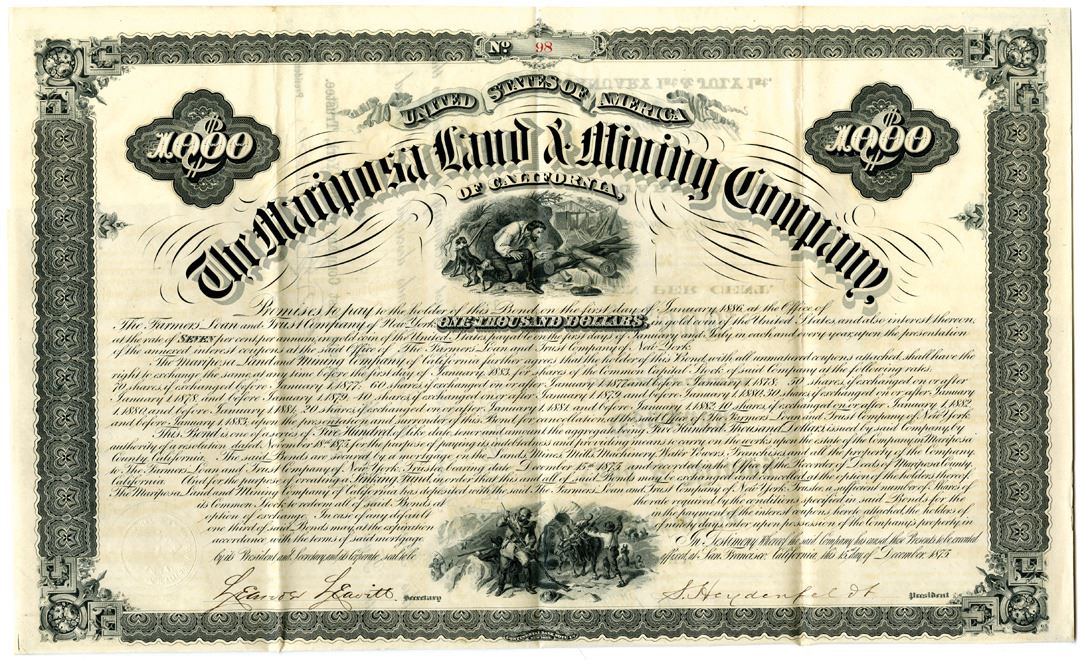 No 98
UNITED STATES OF AMERICA
$1,000
$1,000
The Mariposa Land & Mining Company
OF CALIFORNIA,
Promises to pay to the holder of this Bond on the first day of January 1886 at the Office of
The Farmers Loan and Trust Company of New York ONE THOUSAND DOLLARS in gold coin of the United States, and also interest thereon,
at the rate of SEVEN per cent per annum, in gold coin of the United States payable on the first days of January and July, in each and every year, upon the presentation
of the annexed interest coupons at the said Office of The Farmers Loan and Trust Company of New York.
The Mariposa Land and Mining Company of California further agrees that the holder of this Bond, with all unmatured coupons attached, shall have the
right to exchange the same, at any time before the first day of January 1883, for shares of the Common Capital Stock of said Company at the following rates,
70 shares, if exchanged before January 1, 1877, 60 shares, if exchanged on or after January 1, 1877 and before January 1, 1878, 50 shares if exchanged on or after
January 1, 1878, and before January 1, 1879, 40 shares if exchanged on or after January 1, 1879 and before January 1, 1880, 30 shares if exchanged on or after January
1, 1880, and before January 1, 1881, 20 shares if exchanged on or after January 1, 1881 and before January 1, 1882, 10 shares if exchanged on or after January 1, 1882
and before January 1, 1883, upon the presentation and surrender of this Bond for cancellation, at the said office of The Farmers Loan and Trust Company of New York
This Bond is one of a series of Five Hundred, of like date, tenor and amount, in the aggregate being Five Hundred Thousand Dollars, issued by said Company, by
authority of a resolution dated, November 18th 1875, for the purpose of paying its indebtedness and providing means to carry on the works upon the estate of the Company in Mariposa
County, California. The said Bonds are secured by a mortgage on the Lands, Mines, Mills, Machinery, Water Powers, Franchises and all the property of the Company
to The Farmers Loan and Trust Company of New York, Trustee, bearing date December 15th 1875 and recorded in the Office of the Recorder of Deeds of Mariposa County,
California. And for the purpose of creating a Sinking Fund, in order that this and all of said Bonds may be exchanged and cancelled at the option of the holders thereof
The Mariposa Land and Mining Company of California has deposited with the said The Farmers Loan and Trust Company of New York Trustee, a sufficient number of Shares of
its Common Stock to redeem all of said Bonds at the rate required by the conditions specified in said Bonds for the
option of exchange. In case of any default in the payment of the interest coupons hereto attached, the holders of
one third of said Bonds may at the expiration of ninety days enter upon possession of the Company's property in
accordance with the terms of said mortgage In Testimony Whereof the said Company has caused these Presents to be executed
by its President and Secretary and its corporate seal to be affixed, at San Francisco, California, this 15th day of December 1875
Leander Leavitt Secretary
S. Heydenfeldt President
CONTINENTAL BANK NOTE CO. NEW YORK